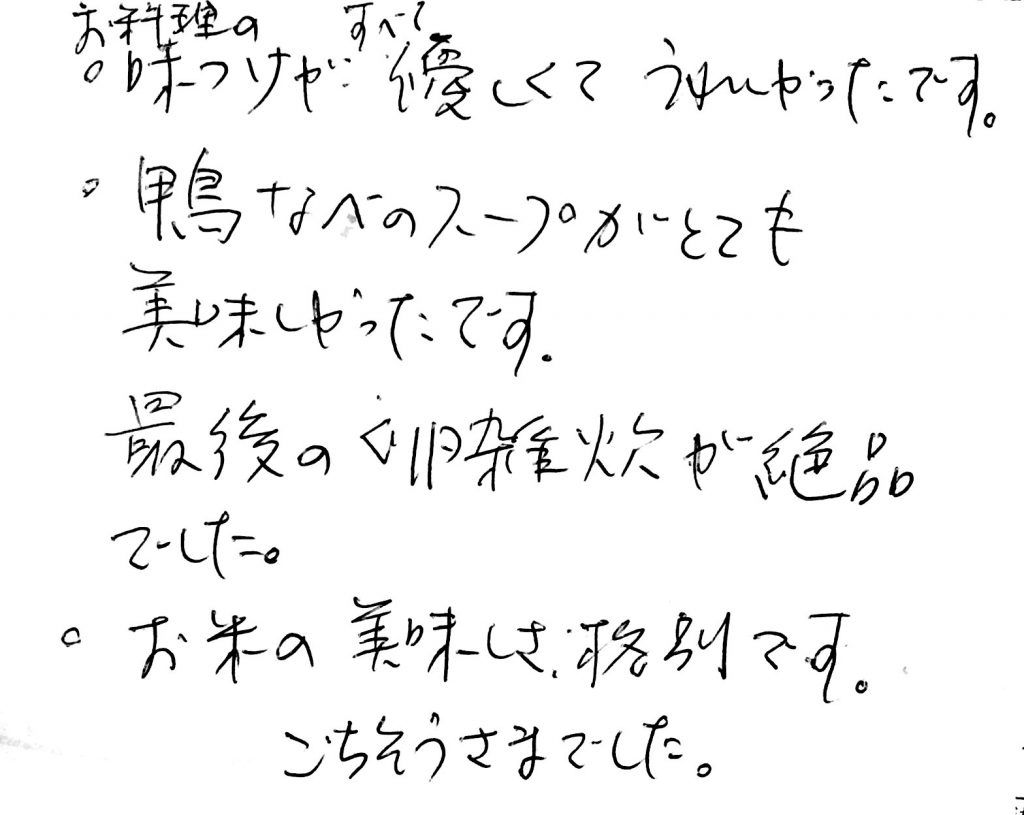 お料理の すべて
○味つけが 優しくて うれしかったです。
○鴨なべのスープがとても
美味しかったです。
最後の卵雑炊が絶品
でした。
○お米の美味しさ、格別です。
ごちそうさまでした。